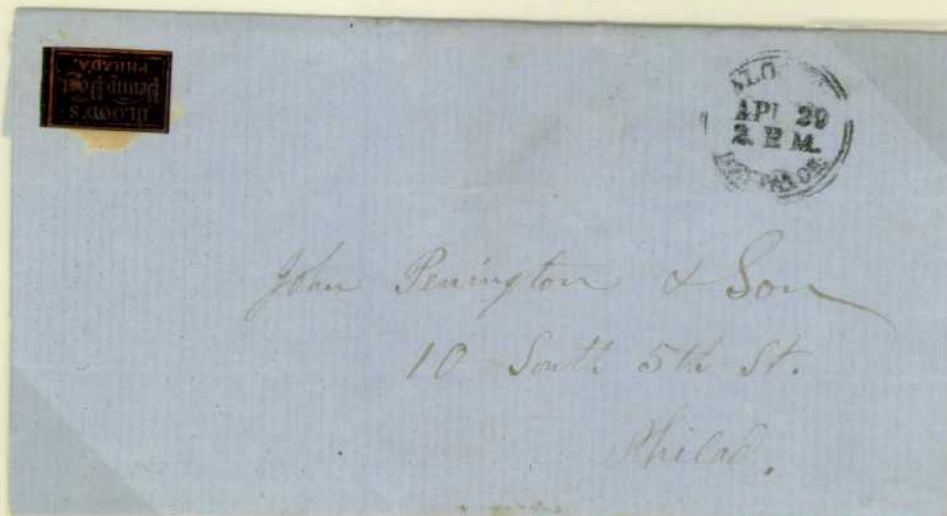 BLOOD'S
Penny Post
PHILADA.
APR 29
2. P M.
John Penington & Son
10 South 5th St.
Philad.